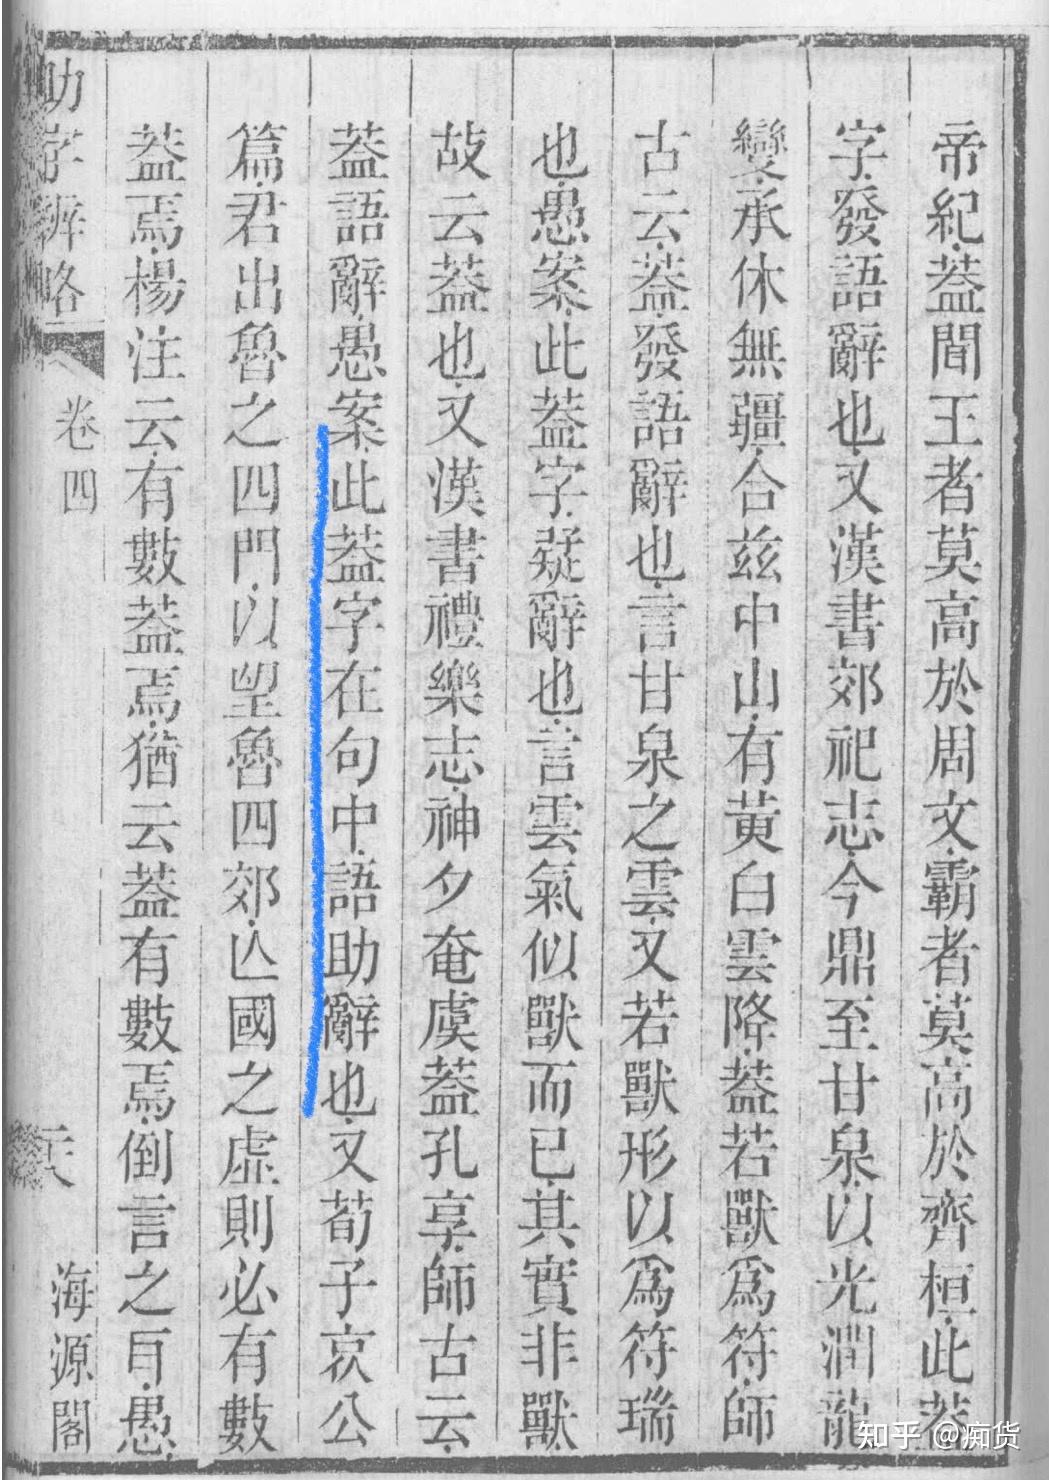 帝紀蓋聞王者莫高於周文霸者莫高於齊桓此蓋
字發語辭也又漢書郊祀志今鼎至甘泉以光潤龍
變承休無疆合茲中山有黃白雲降蓋若獸爲符師
古云蓋發語辭也言甘泉之雲又若獸形以爲符瑞
也愚案此蓋字疑辭也言雲氣似獸而已其實非獸
故云蓋也又漢書禮樂志神夕奄虞蓋孔享師古云
蓋語辭愚案此蓋字在句中語助辭也又荀子哀公
篇君出魯之四門以望魯四郊亾國之虛則必有數
蓋焉楊注云有數蓋焉猶云蓋有數焉倒言之耳愚
助字辨略 卷四 海源閣
知乎 @痴货